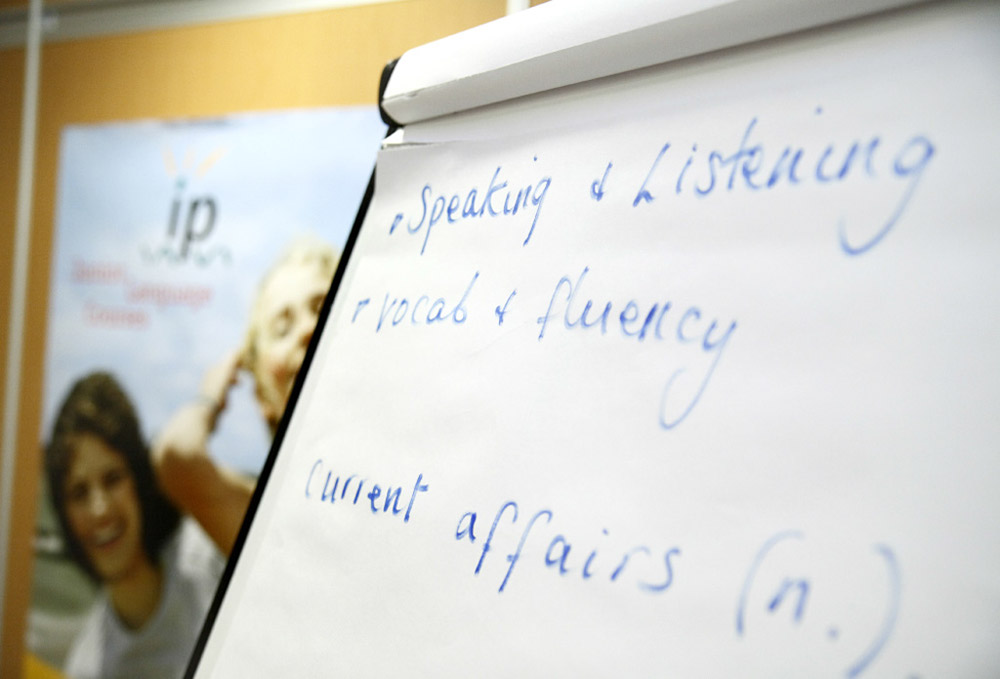 ip
Language
Courses
Speaking & Listening
vocab & fluency
current affairs (n.)